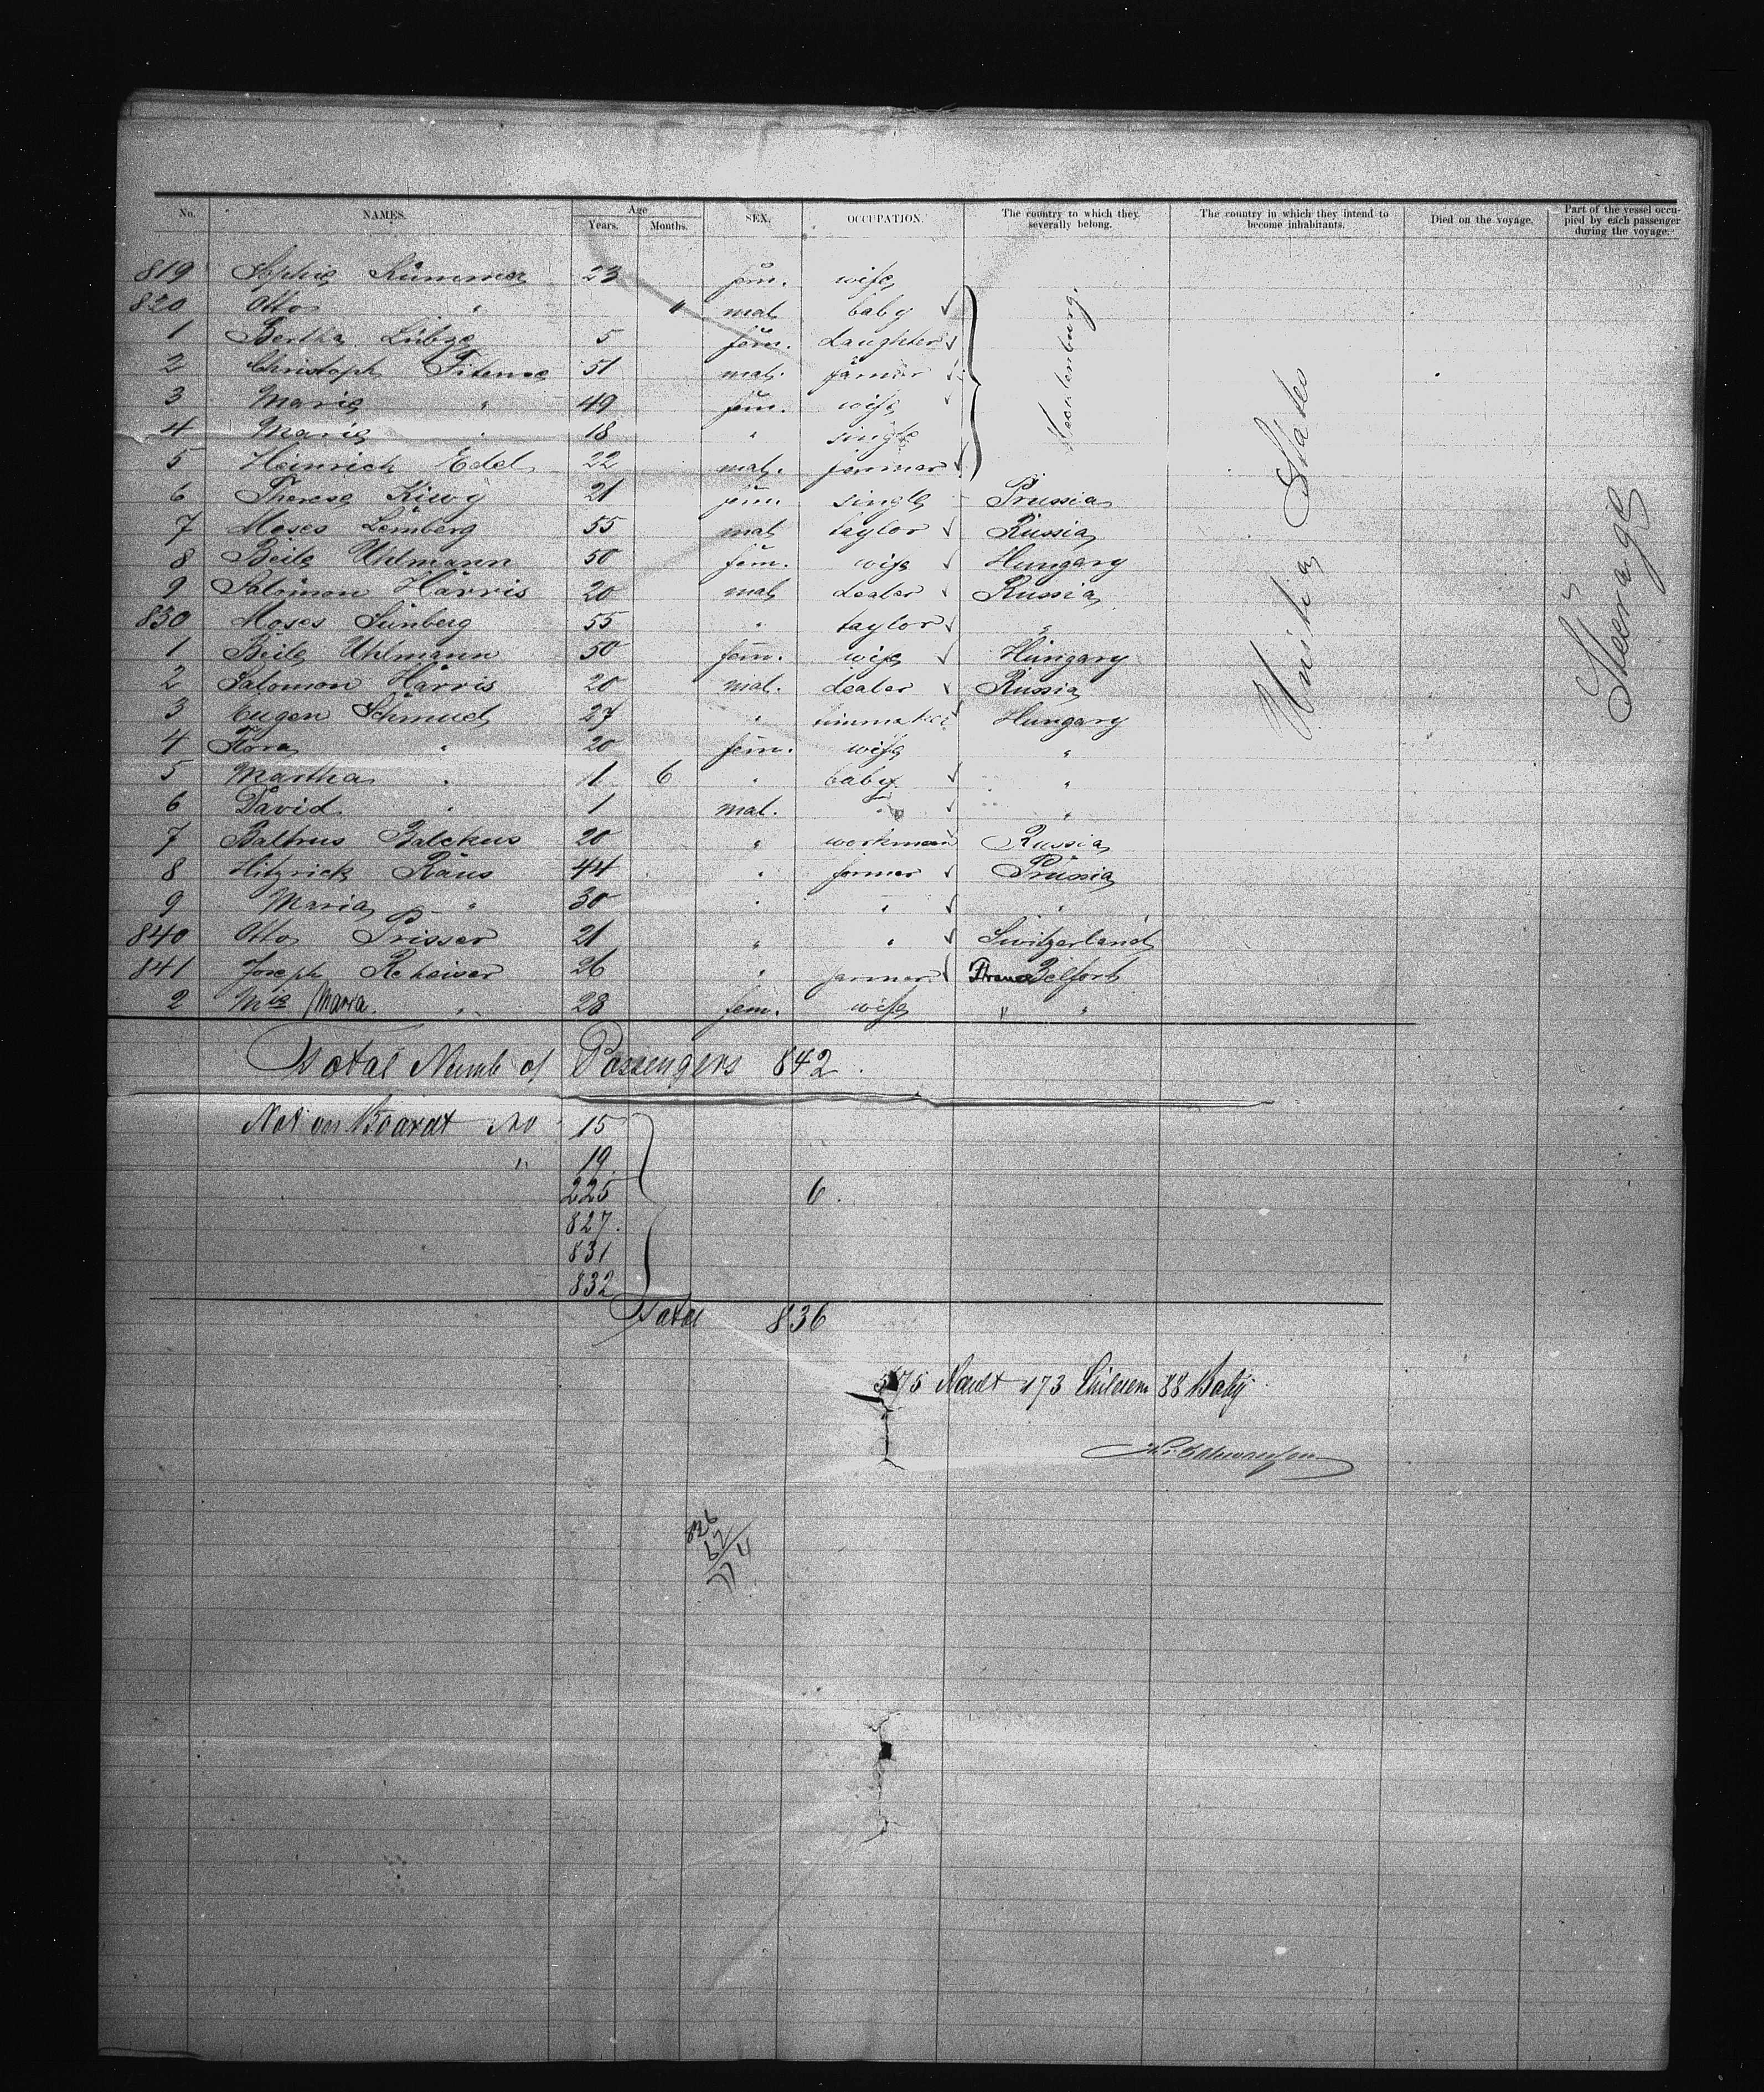 No. NAMES. Age Years. Months. SEX. OCCUPATION. The country to which they severally belong. The country in which they intend to become inhabitants. Died on the voyage. Part of the vessel occupied by each passenger during the voyage.
819 Sophie Kümmer 23 fem. wife
820 Otto " " mal. baby
1 Bertha Lübze 5 fem. daughter
2 Christoph 51 mal. farmer
3 Marie " 49 fem. wife
4 Marie " 18 " single
5 Heinrich Edel 22 mal. farmer
Mecklenburg.
6 Therese Kiwy 21 fem. single Prussia
7 Moses Lemberg 55 mal. taylor Russia
8 Beile Uhlmann 50 fem. wife Hungary
9 Salomon Harris 20 mal. dealer Russia
830 Moses Sünberg 55 " taylor "
1 Beile Uhlmann 50 fem. wife Hungary
2 Salomon Harris 20 mal. dealer Russia
3 Eugen Schmud 27 " Hungary
4 Flora " 20 fem. wife "
5 Martha " 1 6 " baby "
6 David " 1 mal. " "
7 Baltrus Balckus 20 " workman Russia
8 Räus 44 " farmer Prussia
9 Maria " 30 " " "
840 Otto Prisser 21 " " Switzerland
841 Joseph Reheiser 26 " farmer Belfort
2 Mie Maria " 28 fem. wife " "
United States
Steerage
Total Numb of Passengers 842.
Not on Boardt No 15
" 19.
225 6.
827.
831
832
Total 836
575 Aault 173 Children 88 Baby
836
62
774